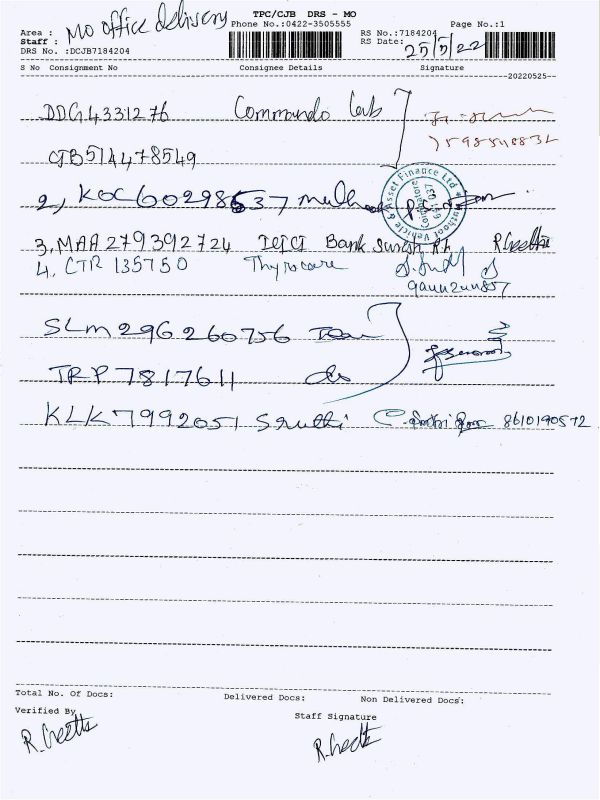 TPC/CJB DRS - MO
Area : MO office delivery Phone No.:0422-3505555 Page No.:1
Staff : RS No.:7184204
DRS No. :DCJB7184204 RS Date: 25/5/22
S No Consignment No Consignee Details Signature
20220525
DDG4331276 Commando
CJB514478549
2, KOC600298537
Asset Finance Ltd
Vehicle &
3, MAA279392724 ICICI Bank R. Geetha
4. CTR 135750 Thyrocare
SLM296260756
TRP7817611 do
KLK7992051 Sruthi 8610190572
Total No. Of Docs: Delivered Docs: Non Delivered Docs:
Verified By Staff Signature
R. Geetha R. Geetha